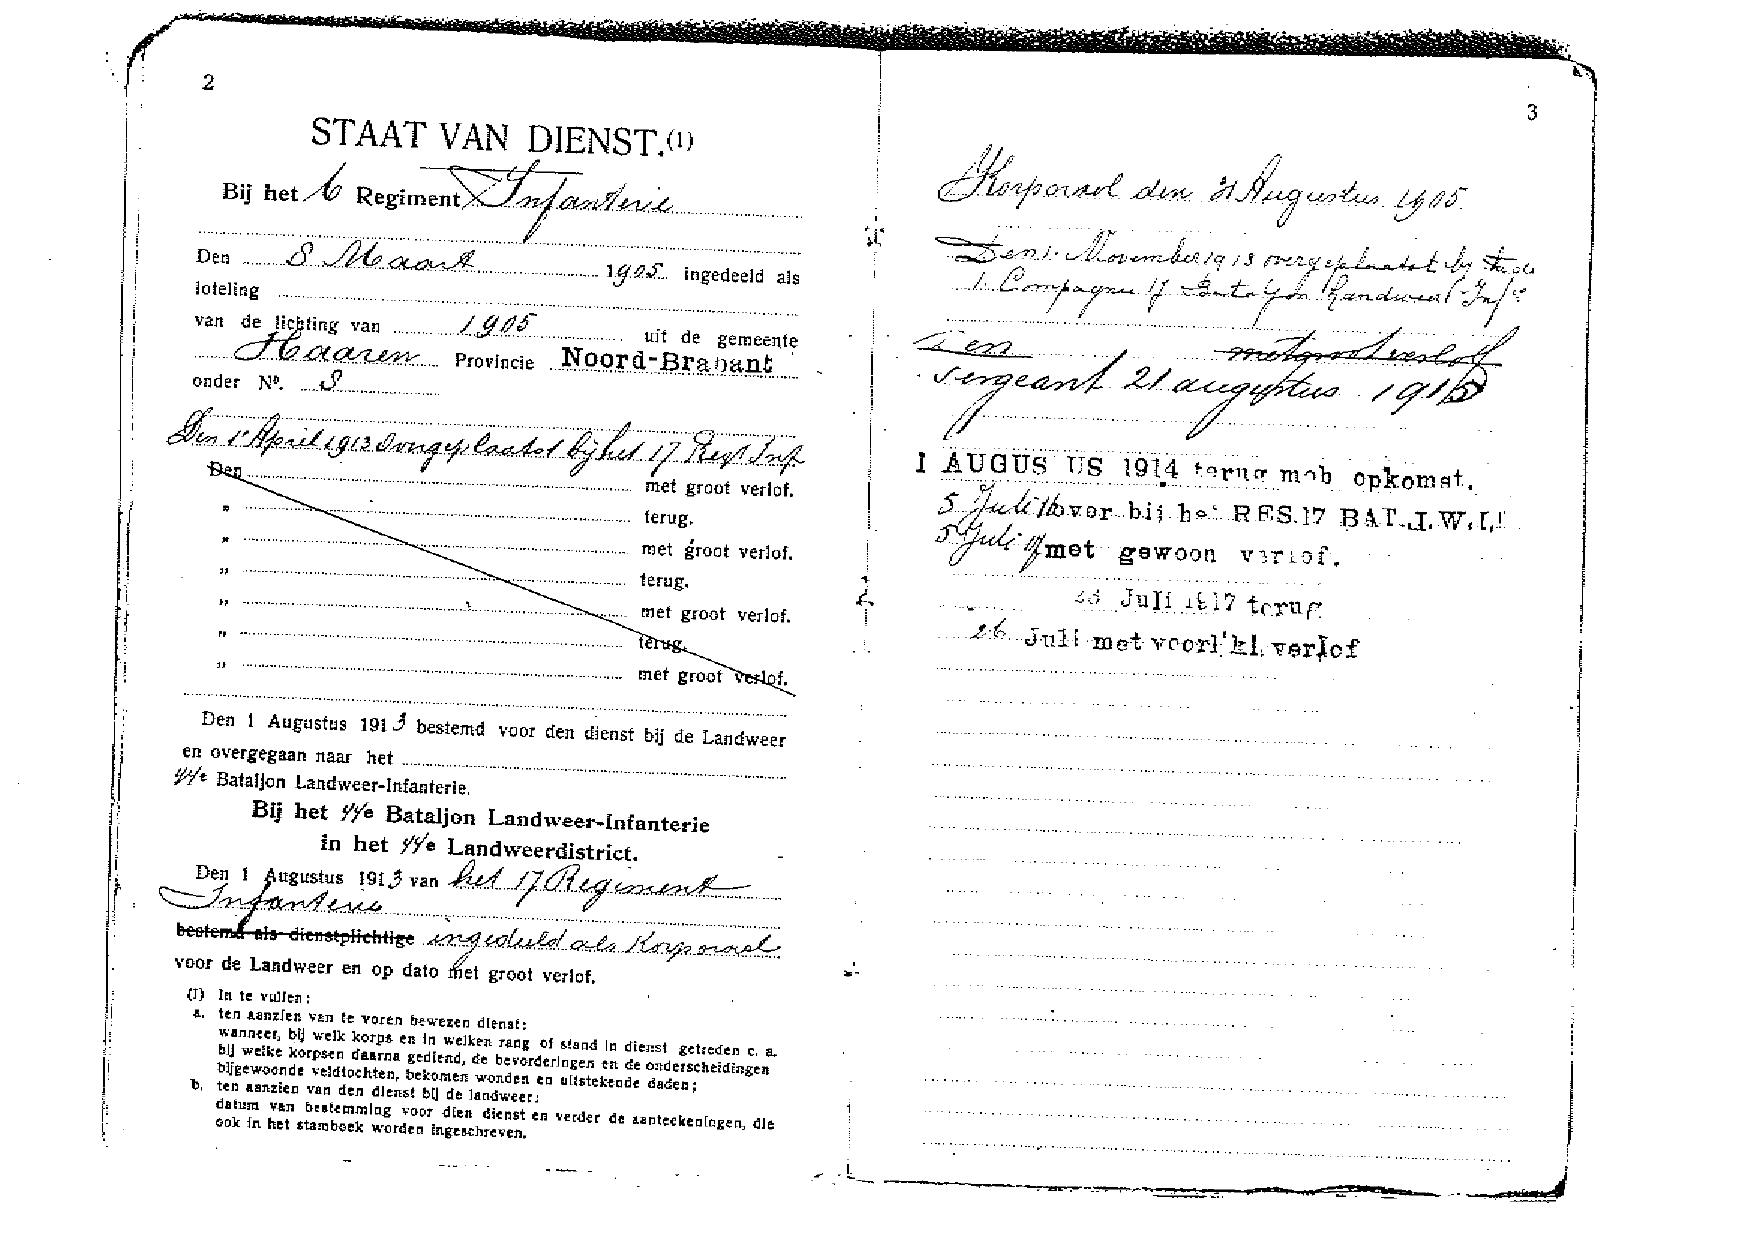 2
STAAT VAN DIENST.(1)
Bij het 6 Regiment Infanterie
Den 8 Maart 1905 ingedeeld als
loteling
van de lichting van 1905 uit de gemeente
Haaren Provincie Noord-Brabant
onder Nº. 8
Den 1e April 1913 overgeplaatst bij het 17 Regt Inf.
Den met groot verlof.
" terug.
" met groot verlof.
" terug.
" met groot verlof.
" terug.
" met groot verlof.
Den 1 Augustus 1913 bestemd voor den dienst bij de Landweer
en overgegaan naar het
44e Bataljon Landweer-Infanterie.
Bij het 44e Bataljon Landweer-Infanterie
in het 44e Landweerdistrict.
Den 1 Augustus 1913 van het 17 Regiment
Infanterie
bestemd als dienstplichtige ingedeeld als Korporaal
voor de Landweer en op dato met groot verlof.
(1) In te vullen:
a. ten aanzien van te voren bewezen dienst:
wanneer, bij welk korps en in welken rang of stand in dienst getreden c. a.
bij welke korpsen daarna gediend, de bevorderingen en de onderscheidingen
bijgewoonde veldtochten, bekomen wonden en uitstekende daden;
b. ten aanzien van den dienst bij de landweer:
datum van bestemming voor dien dienst en verder de aanteekeningen, die
ook in het stamboek worden ingeschreven.
3
Korporaal den 21 Augustus 1905
Den 1. November 1913 overgeplaatst bij de
1. Compagnie 17 Bataljon Landweer Infie
Den met groot verlof
Sergeant 21 augustus 1915
1 AUGUS US 1914 terug mob opkomst.
5 Juli 16 over bij het RES.17 BAT.L.W.I.
5 Juli met gewoon verlof.
Juli 1917 terug
26 Juli met voorl kl. verlof